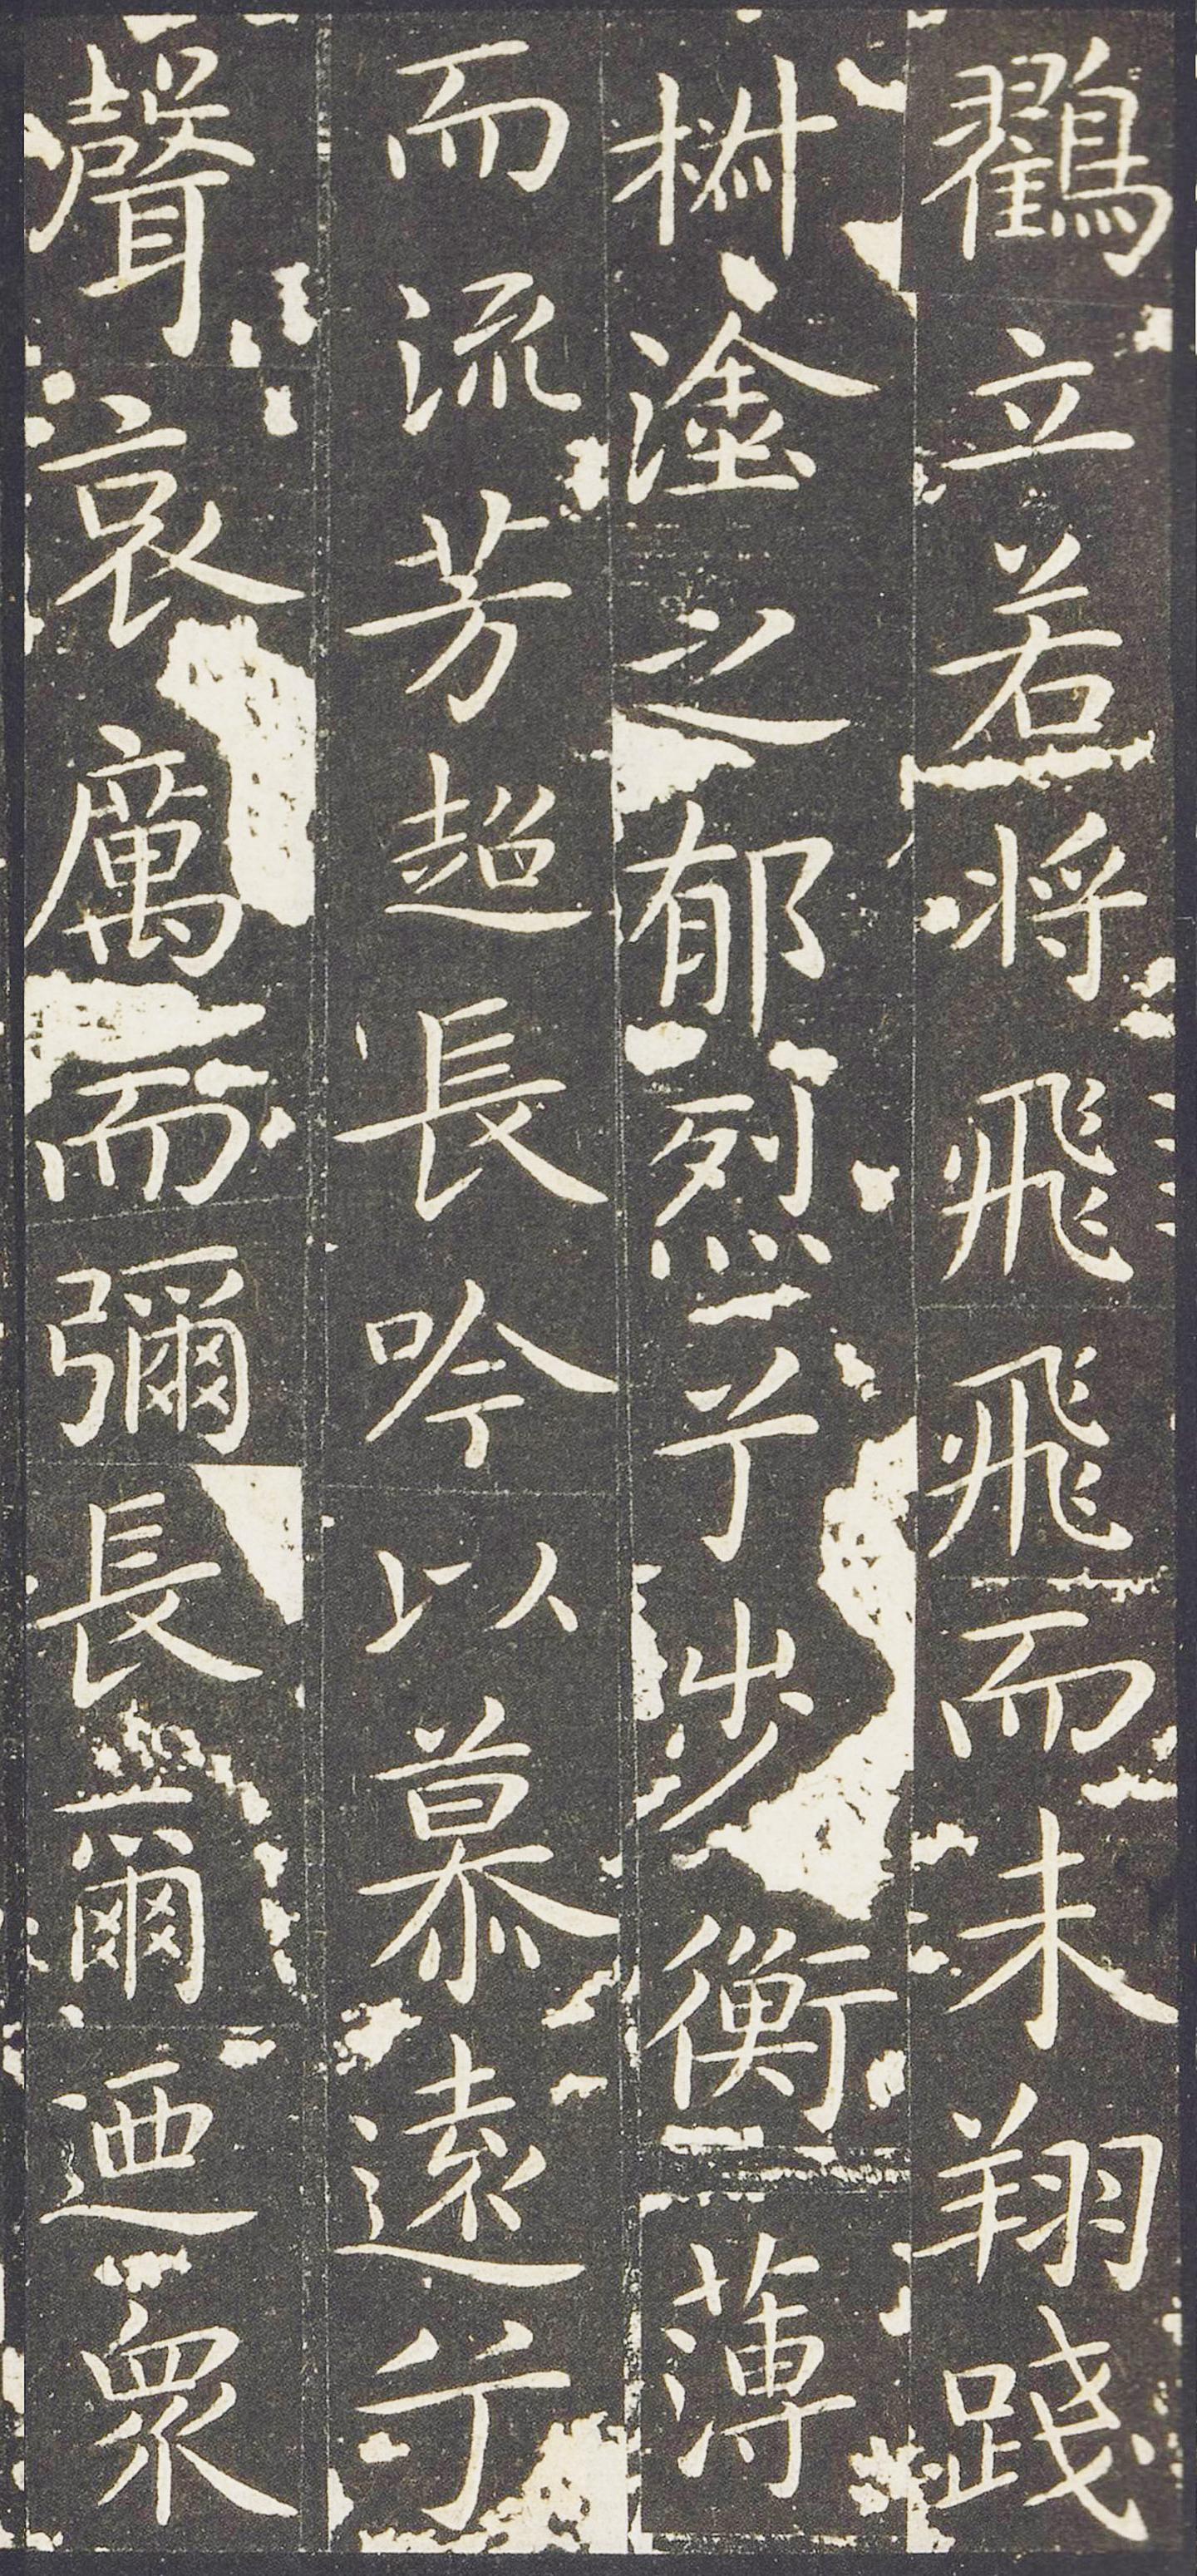 鸖立若将飛飛而未翔踐
椒塗之郁烈兮步蘅薄
而流芳超長吟以慕遠兮
聲哀厲而彌長爾迺衆